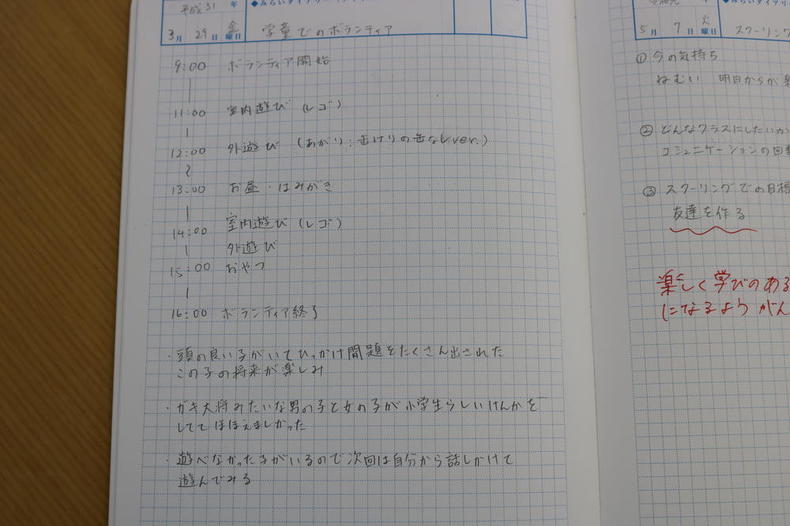 平成 31 年
3月 29日 金曜日
学童でのボランティア
9:00 ボランティア開始
11:00 室内遊び (レゴ)
12:00 外遊び (あがり:缶けりの缶なしver.)
13:00 お昼・はみがき
14:00 室内遊び (レゴ)
外遊び
15:00 おやつ
16:00 ボランティア終了
・頭の良い子がいてひっかけ問題をたくさん出された
この子の将来が楽しみ
・ガキ大将みたいな男の子と女の子が小学生らしいけんかを
しててほほえましかった
・遊べなかった子がいるので次回は自分から話しかけて
遊んでみる
5月 7日 火曜日
スクーリング
① 今の気持ち
ねむい 明日からが
② どんなクラスにしたいか
コミュニケーションの回
③ スクーリングでの目標
友達を作る
楽しく学びのある
になるようがん